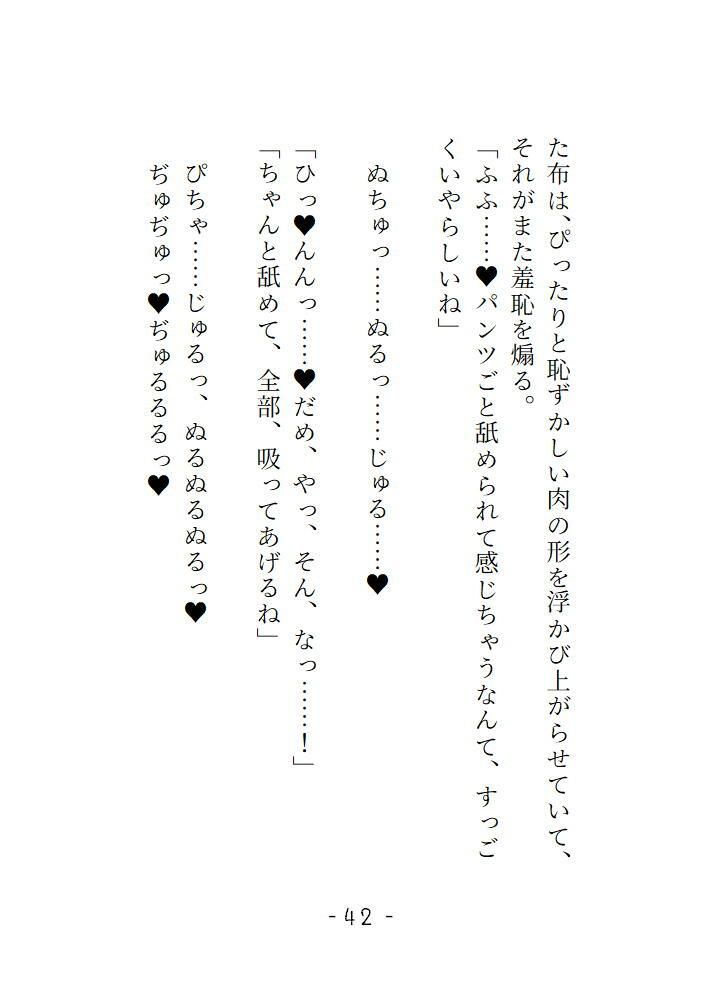 た布は、ぴったりと恥ずかしい肉の形を浮かび上がらせていて、
それがまた羞恥を煽る。
「ふふ……♥パンツごと舐められて感じちゃうなんて、すっご
くいやらしいね」
ぬちゅっ……ぬるっ……じゅる……♥
「ひっ♥んんっ……♥だめ、やっ、そん、なっ……！」
「ちゃんと舐めて、全部、吸ってあげるね」
ぴちゃ……じゅるっ、ぬるぬるぬるっ♥
ぢゅぢゅっ♥ぢゅるるるっ♥
- 42 -